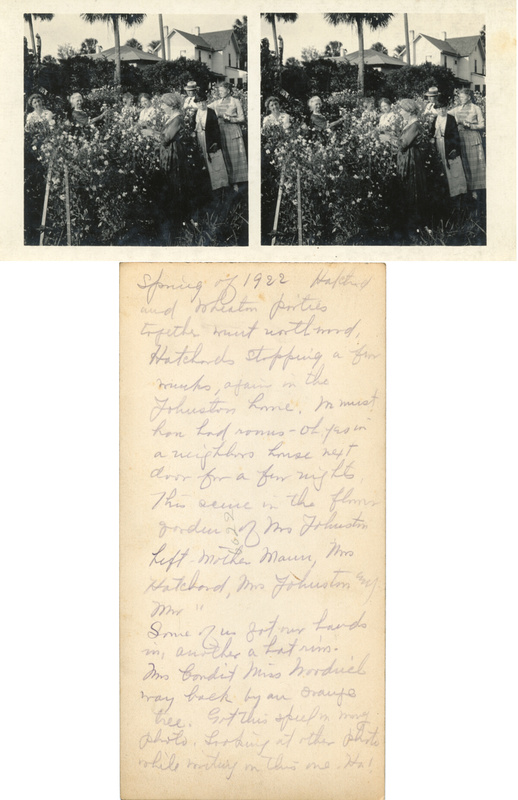 Spring of 1922 Hatchard
and Wheaton parties
together went northward,
Hatchards stopping a few
weeks, again in the
Johnston home. We must
have had rooms - Oh yes in
a neighbors house next
door for a few nights.
This scene in the flower
garden of Mrs Johnston
Left - Mother Mann, Mrs
Hatchard, Mrs Johnston and
Mr "
Some of us got our heads
in, another a hat rim.
Mrs Condit Miss Woodrich
way back by an orange
tree. Got this spiel on wrong
photo. Looking at other photo
while writing on this one. Ha!